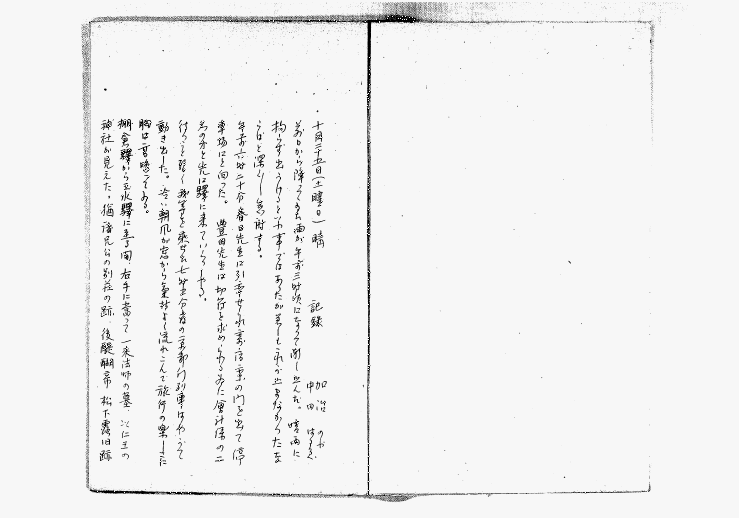 十月二十五日(土曜日) 晴 記録 加治
中田
前日から降つてゐた雨が午前三時頃になつて漸く止んだ。晴雨に
拘らず出かけるといふ事ではあつたが若しもこれが止まなかつたな
らばと深く 感謝する。
午前六時二十分春日先生に引率せられ 寄宿寮の門を出て停
車場にと向つた。豊田先生は切符を求められるため會計係の二
名の方と先に驛に来ていらしやる。
待つこと暫く我等を乗せた七時五分發の京都行列車はやがて
動き出した。冷い朝風が窓から氣持よく流れこんで旅行の楽しさに
胸は高鳴つてゐる。
棚倉驛から玉水驛に至る間、右手に當つて一来法師の墓、以仁王の
神社が見えた。橘諸兄公の別荘の跡、後醍醐帝、松下露旧跡